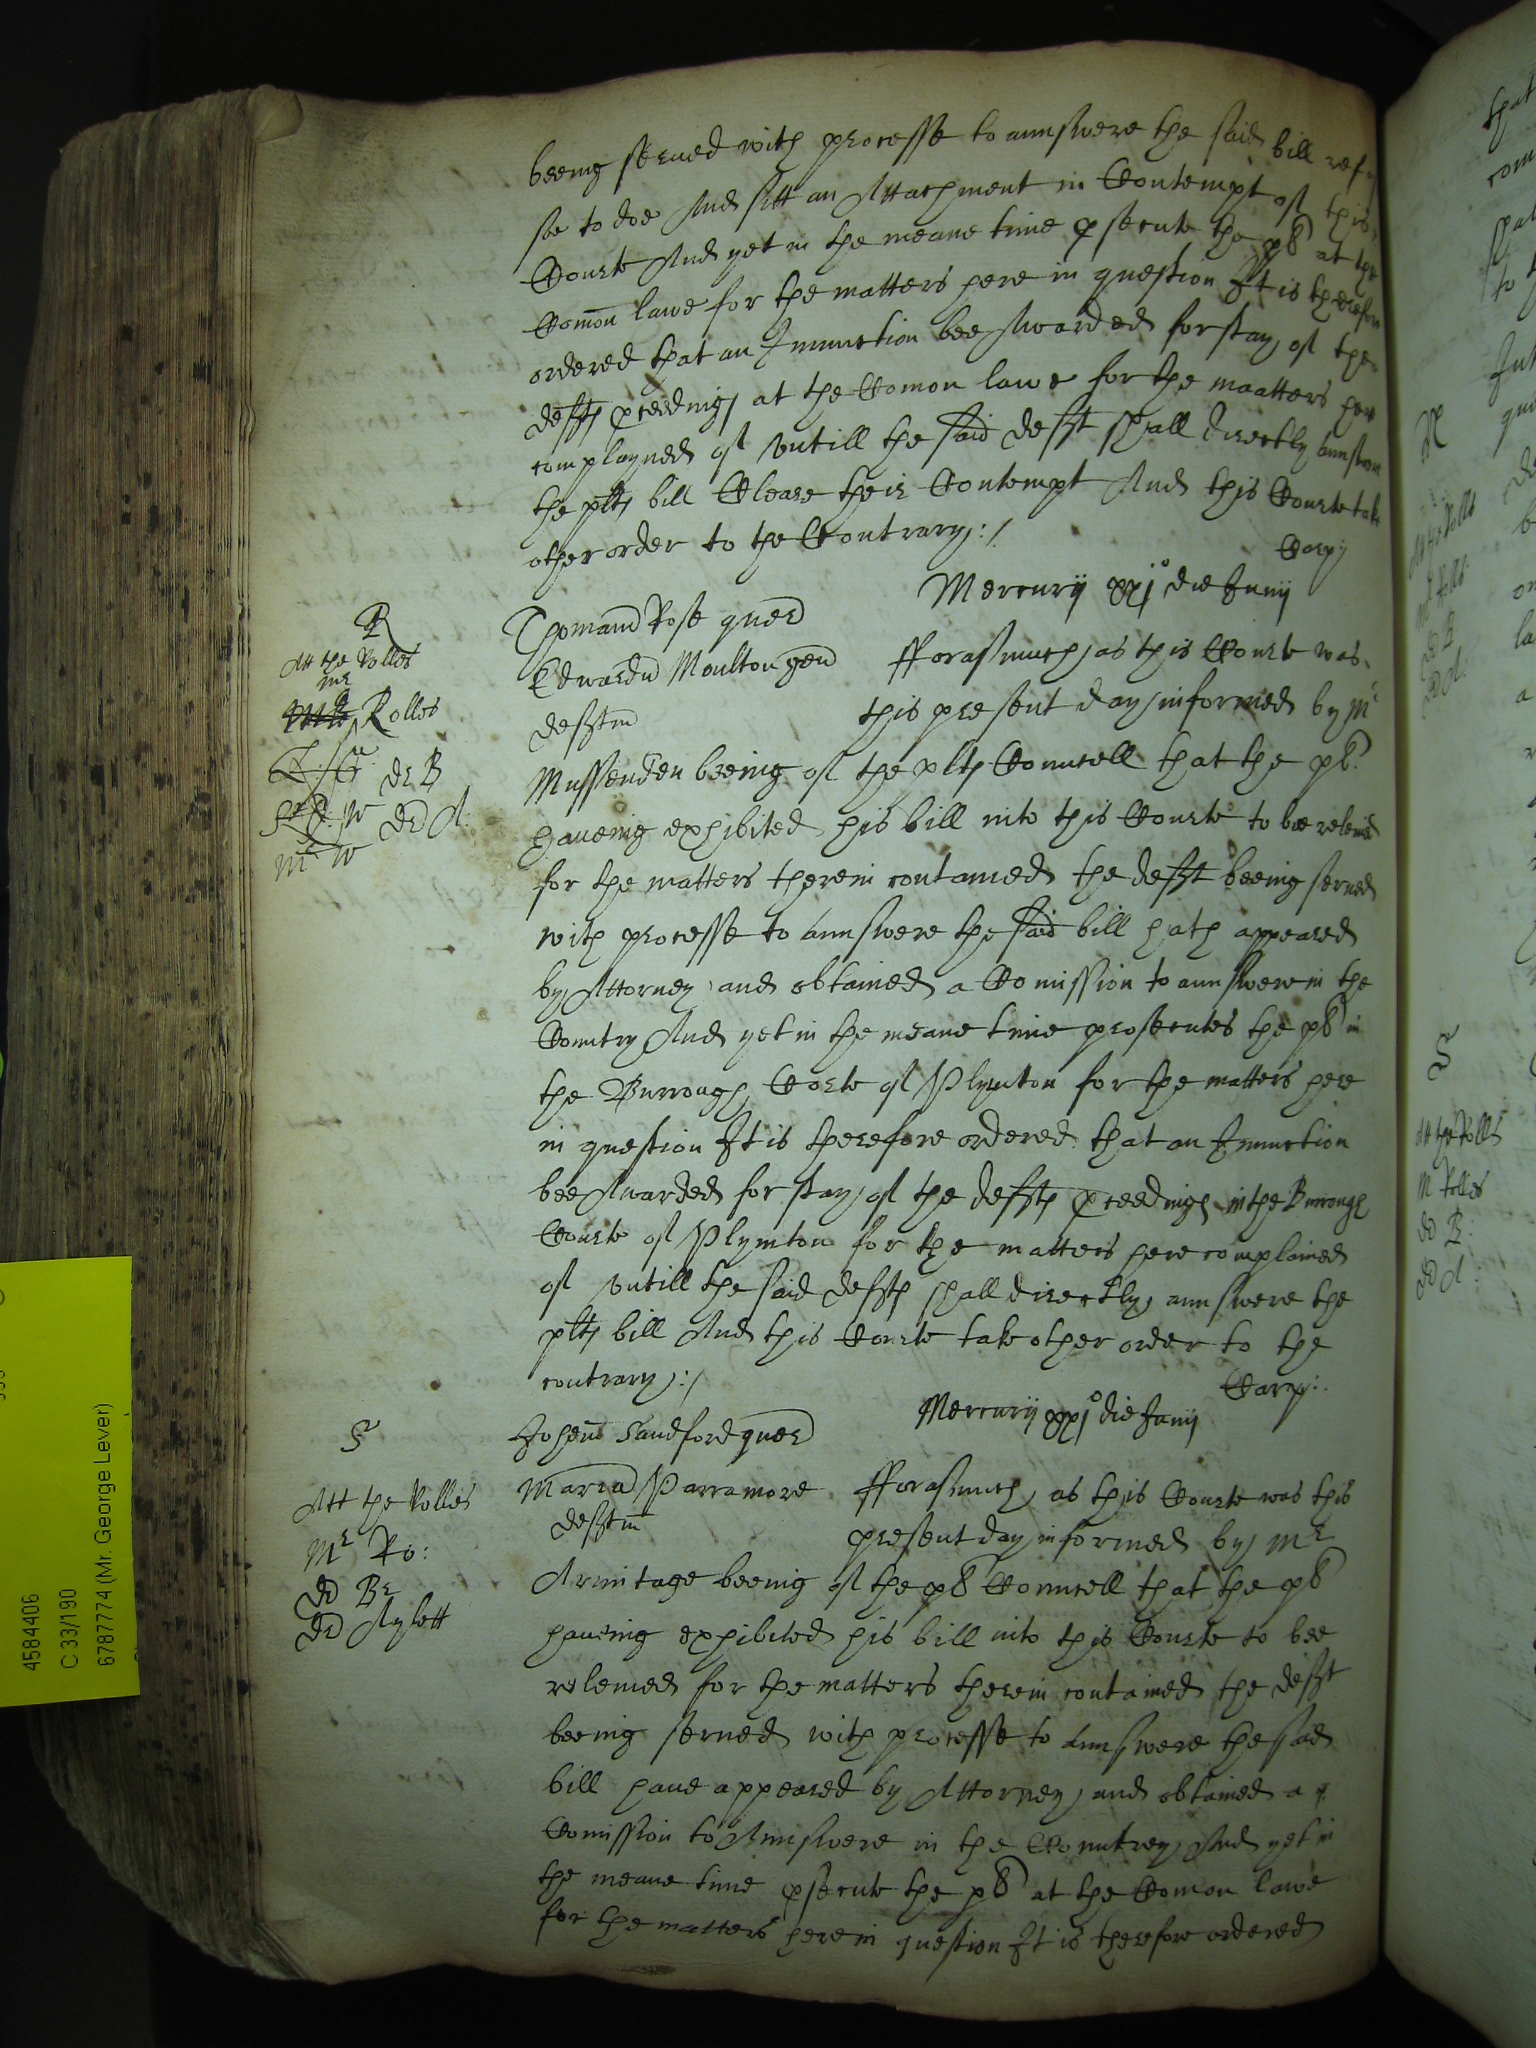 beeing served with processe to aunswere the said bill
soe to doe And sitt an Attachment in Contempt of this
Courte And yet in the meane time psecute the plt at the
Comon lawe for the matters here in question It is therefore
ordered that an Iniunction bee Awarded for stay of the
defts pceedings at the Comon lawe for the maatters here
complayned of vntill the said deft shall directly aunswere
the plts bill Cleare their Contempt And this Courte take
other order to the Contrary :/
Cary:
Mercurij xxj° die Junij
R
Thomam Rose quer
Att the Rolles
Mr
Rolles
Edwardu Moulton gen
deften
fforasmuch as this Courte was
this present day informed by Mr
dr B
dd A:
Mr W
Mussenden beeing of the plts Councell that the plt
haueing exhibited his bill into this Courte to bee releiued
for the matters therein contained the deft beeing serued
with processe to Aunswere the said bill hath appeared
by Attorney and obtained a Comission to aunswere in the
Country And yet in the meane time prosecutes the plt in
the Burrough Corte of Plymton for the matters here
in question It is therefore ordered that an Iniunction
bee Awarded for stay of the defts pceedings in the Burrough
Courte of Plymton for the matters here complained
of vntill the said defts shall directly aunswere the
plts bill And this Courte take other order to the
contrary :/
Cary:
Mercurij xxj° die Junij
S
Johem Sandford quer
Att the Rolles
Mr Ro:
dd Br
dd Aylett
Maria Parramore
deften
fforasmuch as this Courte was this
present day informed by Mr
Armitage beeing of the plt Councell that the plt
haueing exhibited his bill into this Courte to bee
releiued for the matters therein contained the deft
beeing serued with processe to Aunswere the said
bill haue appeared by Attorney and obtained a
Comission to Aunswere in the Countrey And yet in
the meane time psecute the plt at the Comon lawe
for the matters here in question It is therefore ordered
4584406
C 33/190
6787774 (Mr. George Lever)
Att the Rolles
Mr Rolles
dd B:
dd A:
S
Att the Rolls
M Rolles
dd B:
dd A: